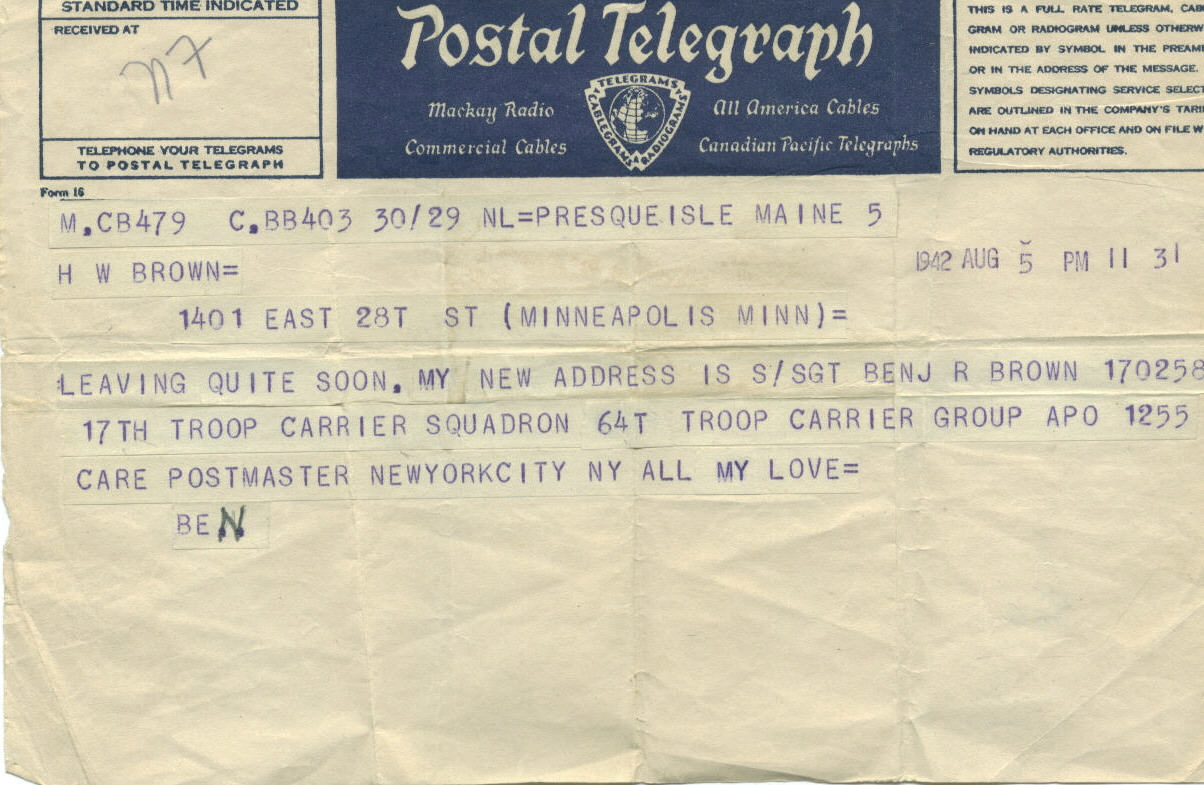 STANDARD TIME INDICATED
RECEIVED AT
TELEPHONE YOUR TELEGRAMS
TO POSTAL TELEGRAPH
Postal Telegraph
Mackay Radio
All America Cables
Commercial Cables
Canadian Pacific Telegraphs
TELEGRAMS
CABLEGRAMS
RADIOGRAMS
THIS IS A FULL RATE TELEGRAM, CAB
GRAM OR RADIOGRAM UNLESS OTHERW
INDICATED BY SYMBOL IN THE PREAM
OR IN THE ADDRESS OF THE MESSAGE.
SYMBOLS DESIGNATING SERVICE SELECT
ARE OUTLINED IN THE COMPANY'S TARI
ON HAND AT EACH OFFICE AND ON FILE W
REGULATORY AUTHORITIES.
Form 16
M.CB479 C.BB403 30/29 NL=PRESQUEISLE MAINE 5
H W BROWN=
1942 AUG 5 PM 11 31
1401 EAST 28T ST (MINNEAPOLIS MINN)=
LEAVING QUITE SOON. MY NEW ADDRESS IS S/SGT BENJ R BROWN 170258
17TH TROOP CARRIER SQUADRON 64T TROOP CARRIER GROUP APO 1255
CARE POSTMASTER NEWYORKCITY NY ALL MY LOVE=
BEN